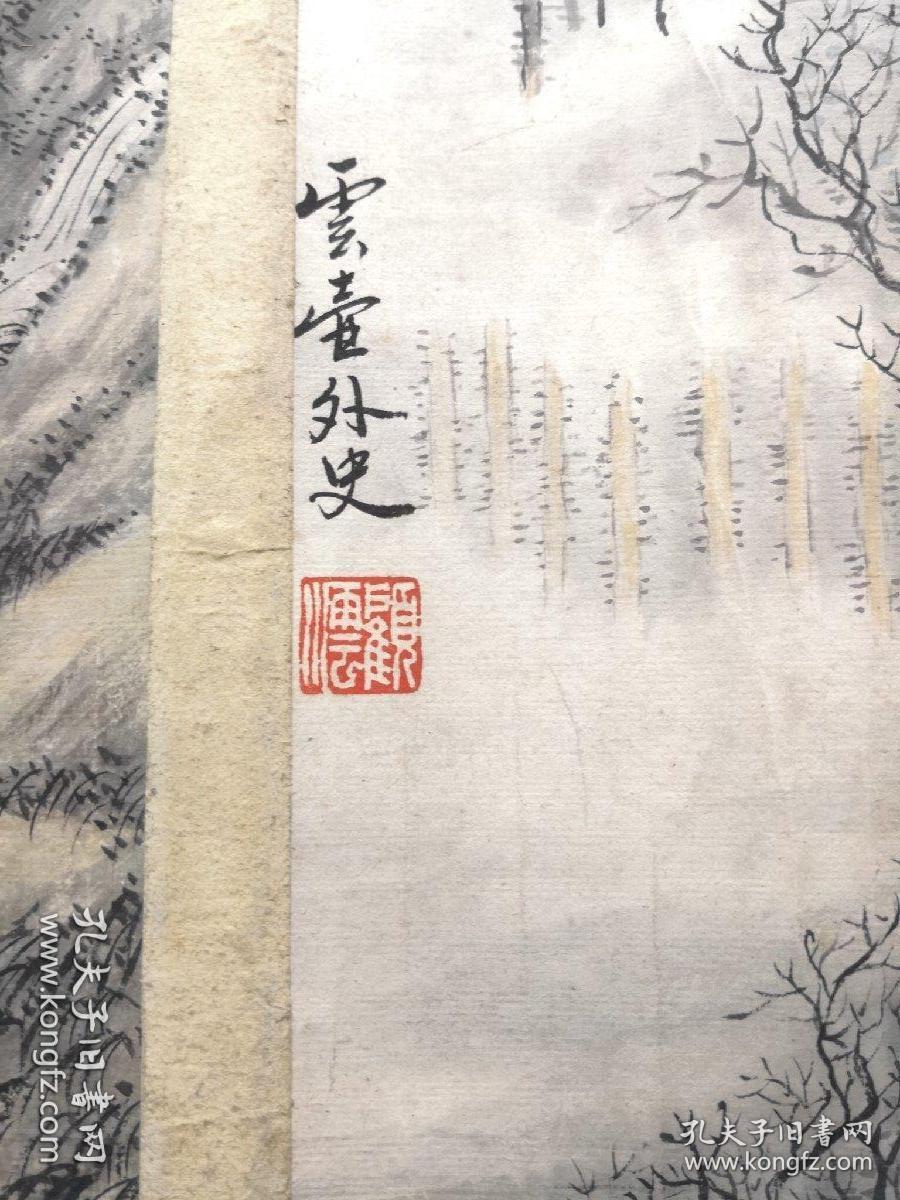 雲壺外史
顧澐
孔夫子旧书网
www.kongfz.com
孔夫子旧书网
www.kongfz.com